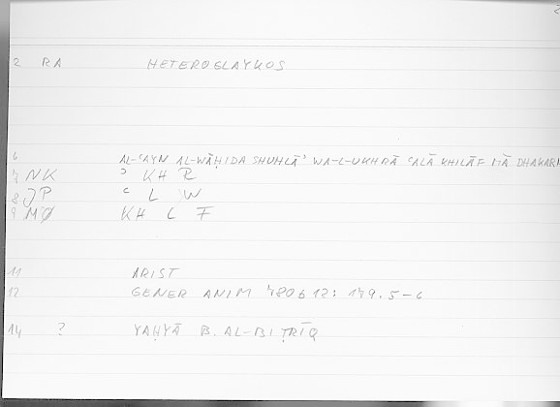 2 RA HETEROGLAYKOS
6 AL-ʿAYN AL-WĀḤIDA SHUHLĀʾ WA-L-UKHRĀ ʿALĀ KHILĀF MĀ DHAKARN
7 NK ʾ KH R
8 JP ʿ L W
9 MØ KH L F
11 ARIST
12 GENER ANIM 780b12: 179.5-6
14 ? YAḤYĀ B. AL-BIṬRĪQ